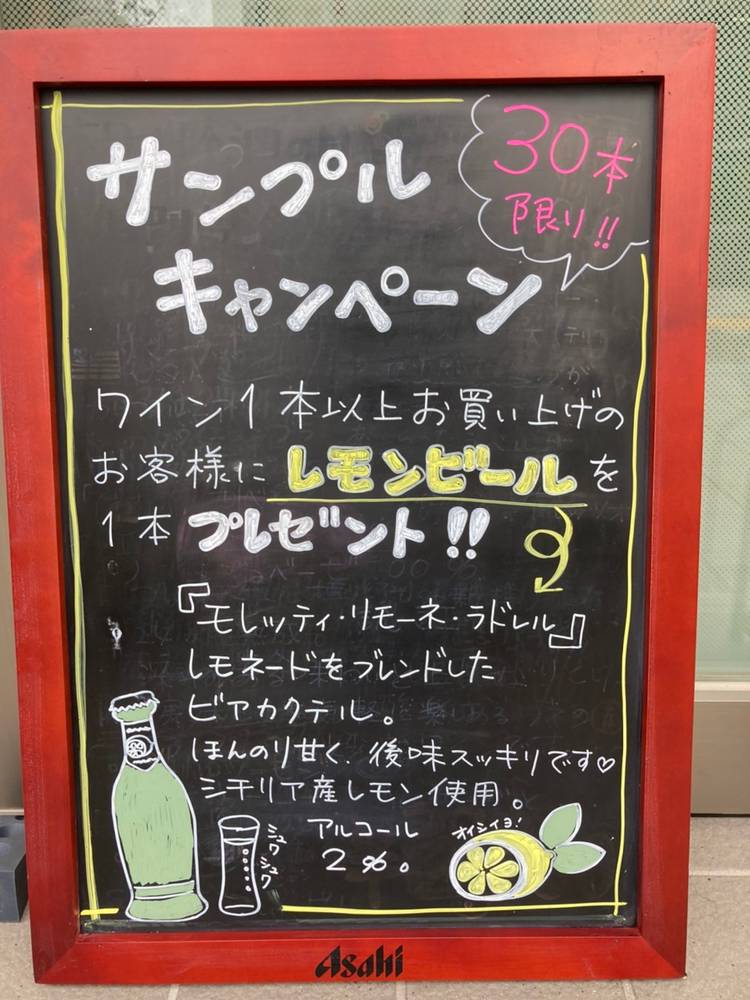 サンプル
キャンペーン
30本
限り!!
ワイン1本以上お買い上げの
お客様に レモンビール を
1本 プレゼント!!
『モレッティ・リモーネ・ラドレル』
レモネードをブレンドした
ビアカクテル。
ほんのり甘く、後味スッキリです♡
シチリア産レモン使用。
アルコール
2%。
シュワ
シュワ
オイシイヨ!
Asahi